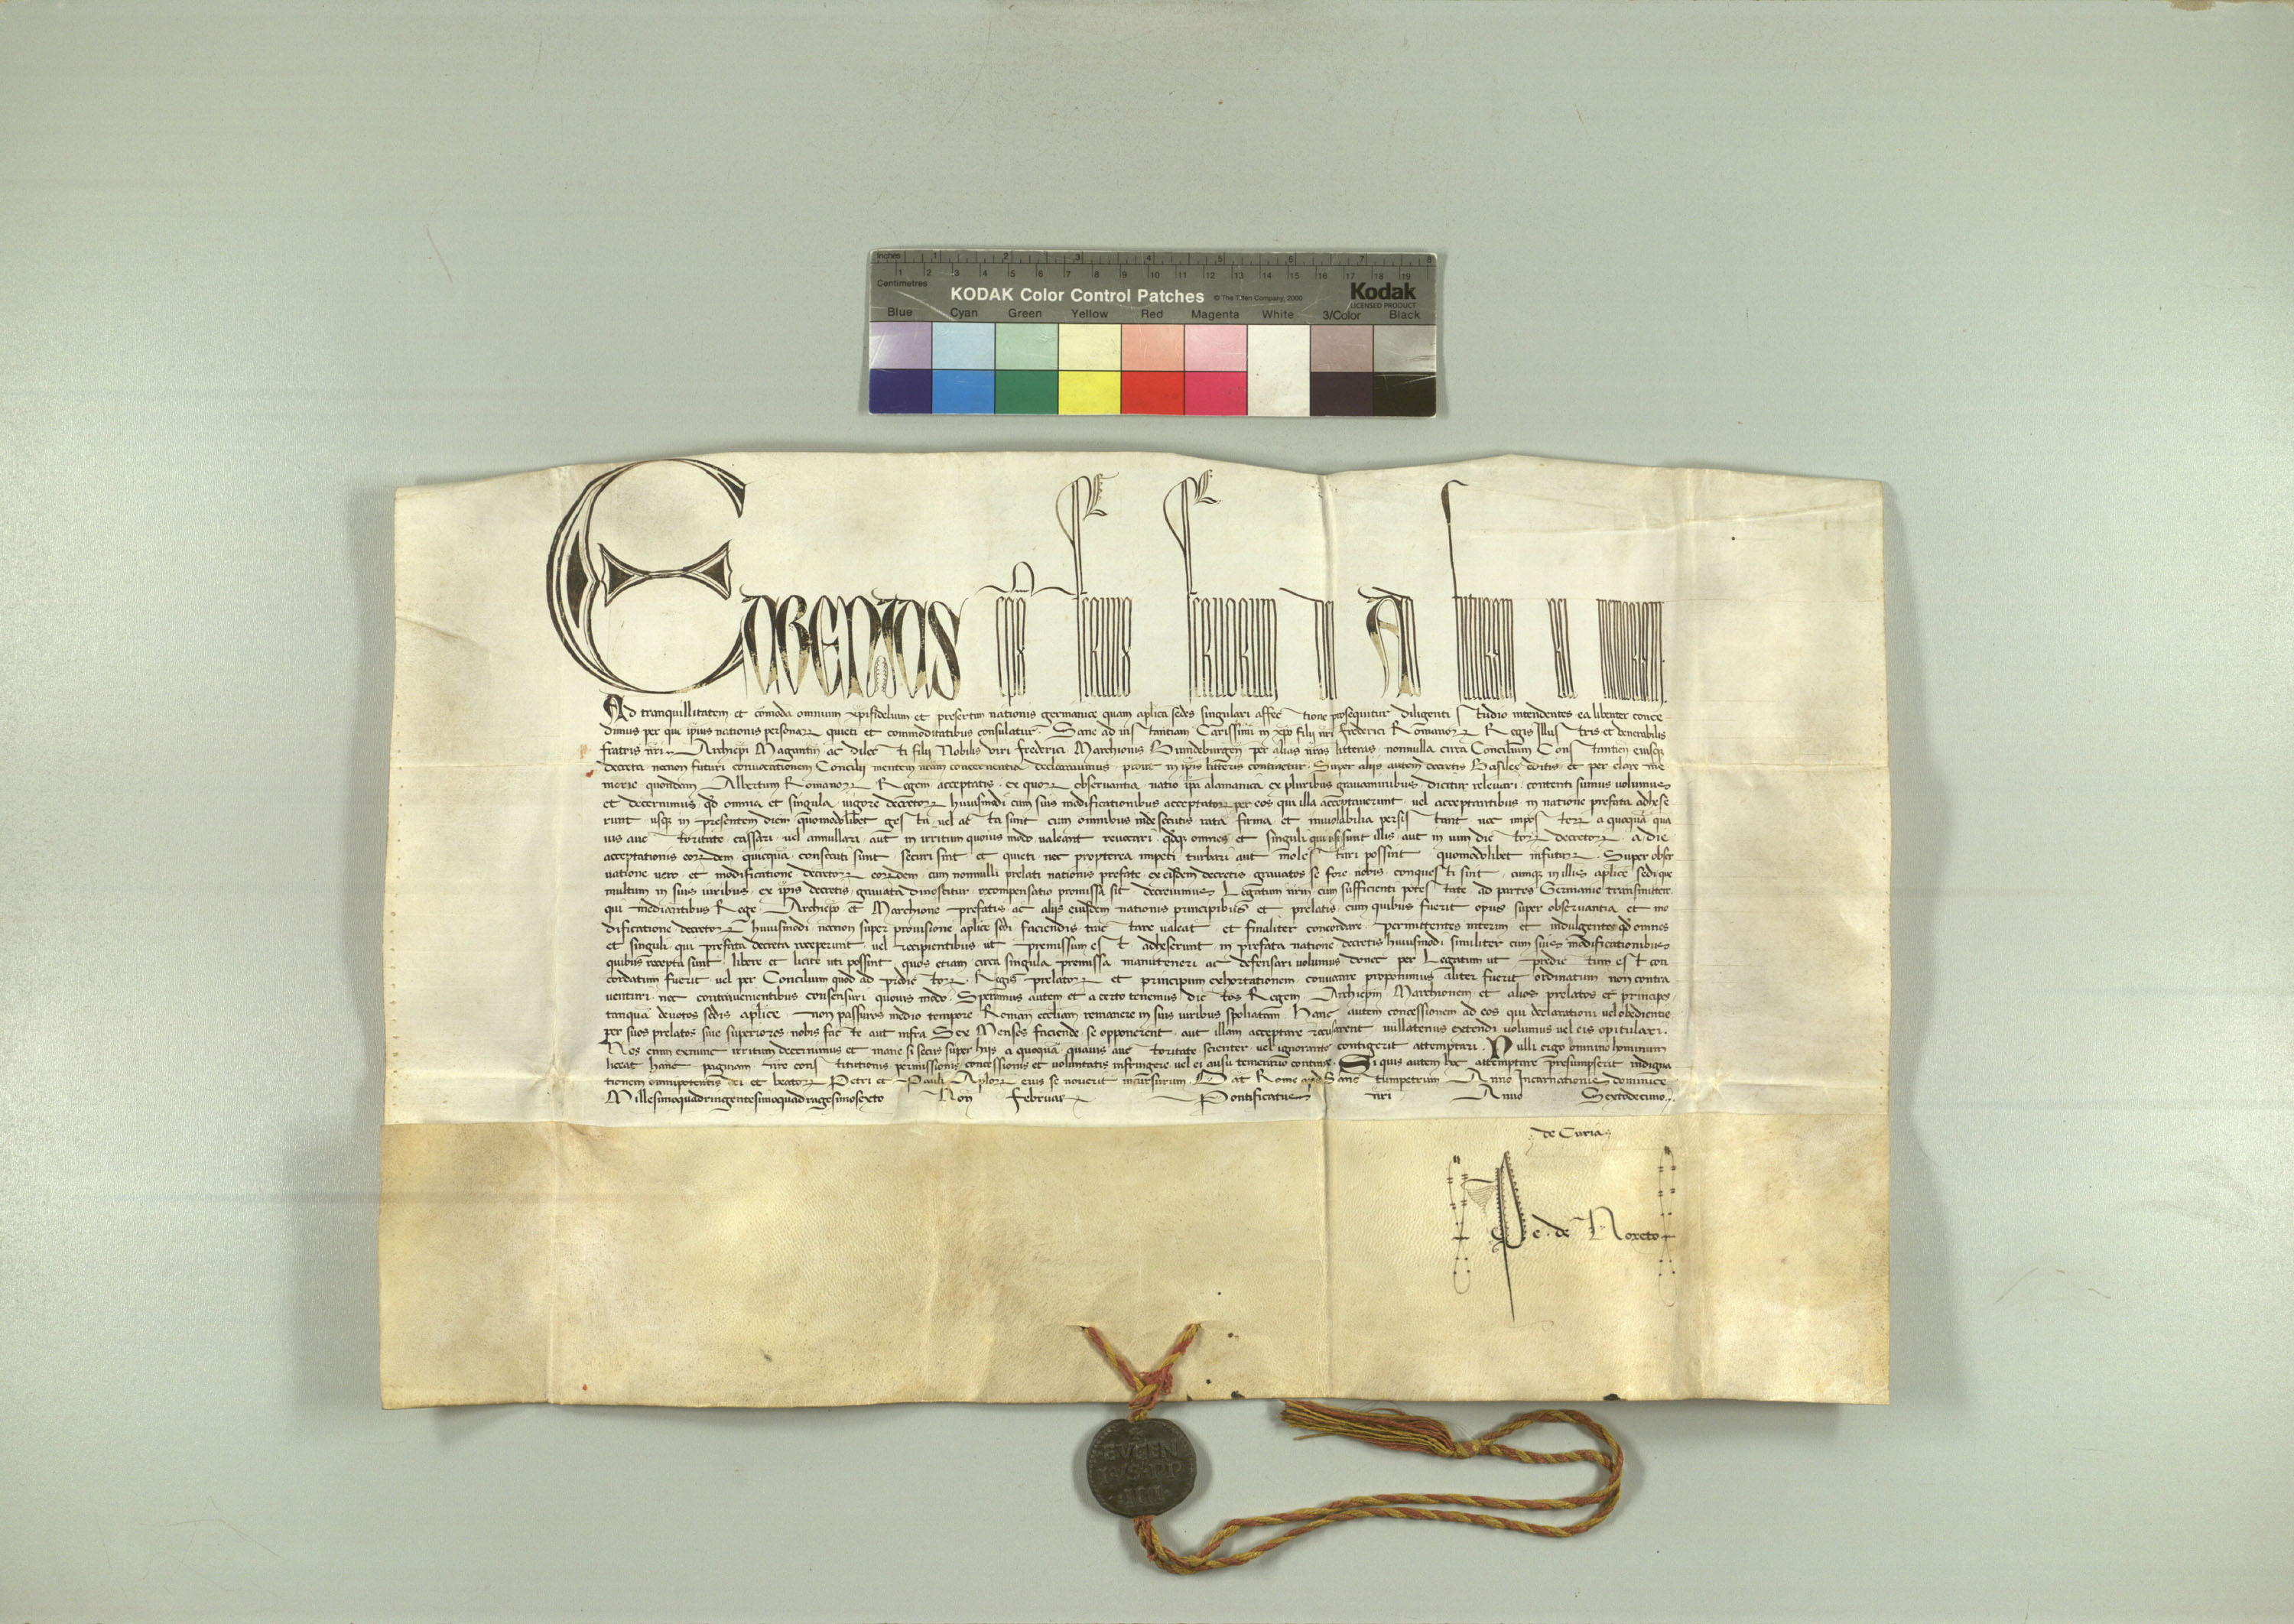 Inches 1 2 3 4 5 6 7 8
Centimetres 1 2 3 4 5 6 7 8 9 10 11 12 13 14 15 16 17 18 19
KODAK Color Control Patches © The Tiffen Company, 2000 Kodak
LICENSED PRODUCT
Blue Cyan Green Yellow Red Magenta White 3/Color Black
EUGENIUS ep̄s seruus seruorum dei Ad futuram rei memoriam.
Ad tranquillitatem et cōmoda omnium xp̄ifidelium et presertim nationis germanice quam aplica sedes singulari affectione prosequitur diligenti studio intendentes ea libenter conce
dimus per que ipsius nationis personarꝝ quieti et commoditatibus consulatur. Sane ad instantiam Carissimi in xpō filii nr̄i Frederici Romanorꝝ Regis Illustris et venerabilis
fratris nr̄i Archiepī Magantin̄ ac dilecti filii Nobilis viri Frederici Marchionis Brandeburgen̄ per alias nr̄as litteras nonnulla circa Concilium Constantien̄ eiusqꝫ
decreta necnon futuri convocationem Concilii mentem nr̄am concernentia declaravimus prout in ipsis litteris continetur. Super aliis autem decretis Basilee editis et per clare me
morie quondam Albertum Romanorꝝ Regem acceptatis ex quorꝝ observantia natio ip̄a alamanica ex pluribus gravaminibus dicitur relevari contenti sumus volumus
et decernimus qd̄ omnia et singula vigore decretorꝝ huiusmodi cum suis modificationibus acceptatorꝝ per eos qui illa acceptaverunt vel acceptantibus in natione prefata adhese
runt usqꝫ in presentem diem quomodolibet gesta vel acta sint cum omnibus inde secutis rata firma et inviolabilia persistant nec imposterꝝ a quoquā qua
vis auctoritate cassari vel annullari aut in irritum quovis modo valeant revocari qdqꝫ omnes et singuli qui usi sunt illis aut in vim dictorꝝ decretorꝝ a die
acceptationis eorꝝdem quicquā consecuti sunt securi sint et quieti nec propterea impeti turbari aut molestari possint quomodolibet infuturꝝ. Super obser
vatione vero et modificatione decretorꝝ eorꝝdem cum nonnulli prelati nationis prefate ex eisdem decretis gravatos se fore nobis conquesti sint cumqꝫ in illis aplice sedi que
multum in suis iuribus ex ip̄is decretis gravata dinoscitur recompensatio promissa sit decrevimus Legatum nr̄m cum sufficienti potestate ad partes Germanie transmittere
qui mediantibus Rege Archiepō et Marchione prefatis ac aliis eiusdem nationis principibus et prelatis cum quibus fuerit opus super observantia et mo
dificatione decretorꝝ huiusmodi necnon super provisione aplice sedi faciendis tractare valeat et finaliter concordare permittentes interim et indulgentes qd̄ omnes
et singuli qui prefata decreta receperunt vel recipientibus ut premissum est adheserunt in prefata natione decretis huiusmodi similiter cum suis modificationibus
quibus recepta sunt libere et licite uti possint quos etiam circa singula premissa manuteneri ac defensari volumus donec per Legatum ut predictum est con
cordatum fuerit vel per Concilium quod ad predictorꝝ Regis prelatorꝝ et principum exhortationem convocare proponimus aliter fuerit ordinatum non contra
venturi nec contravenientibus consensuri quovis modo. Speramus autem et a certo tenemus dictos Regem Archiepm̄ Marchionem et alios prelatos et principes
tanquā devotos sedis aplice non passuros medio tempore Roman̄ eccliam remanere in suis iuribus spoliatam. Hanc autem concessionem ad eos qui declarationi vel obedientie
per suos prelatos sive superiores nobis facte aut infra Sex Menses faciende se opponerent aut illam acceptare recusarent nullatenus extendi volumus vel eis opitulari.
Nos enim exnunc irritum decernimus et inane si secus super hiis a quoquā quavis auctoritate scienter vel ignoranter contigerit attemptari. Nulli ergo omnino hominum
liceat hanc paginam nr̄e constitutionis permissionis concessionis et voluntatis infringere vel ei ausu temerario contraire. Si quis autem hoc attemptare presumpserit indigna
tionem omnipotentis dei et beatorꝝ Petri et Pauli Aplorꝝ eius se noverit incursurum. Dat Rome apud Sanctumpetrum Anno Incarnationis dominice
Millesimoquadringentesimoquadragesimosexto Non Februar Pontificatus nr̄i Anno Sextodecimo.
de Curia
Pe. de Noxeto
EVGEN
IVS·PP
·IIII·